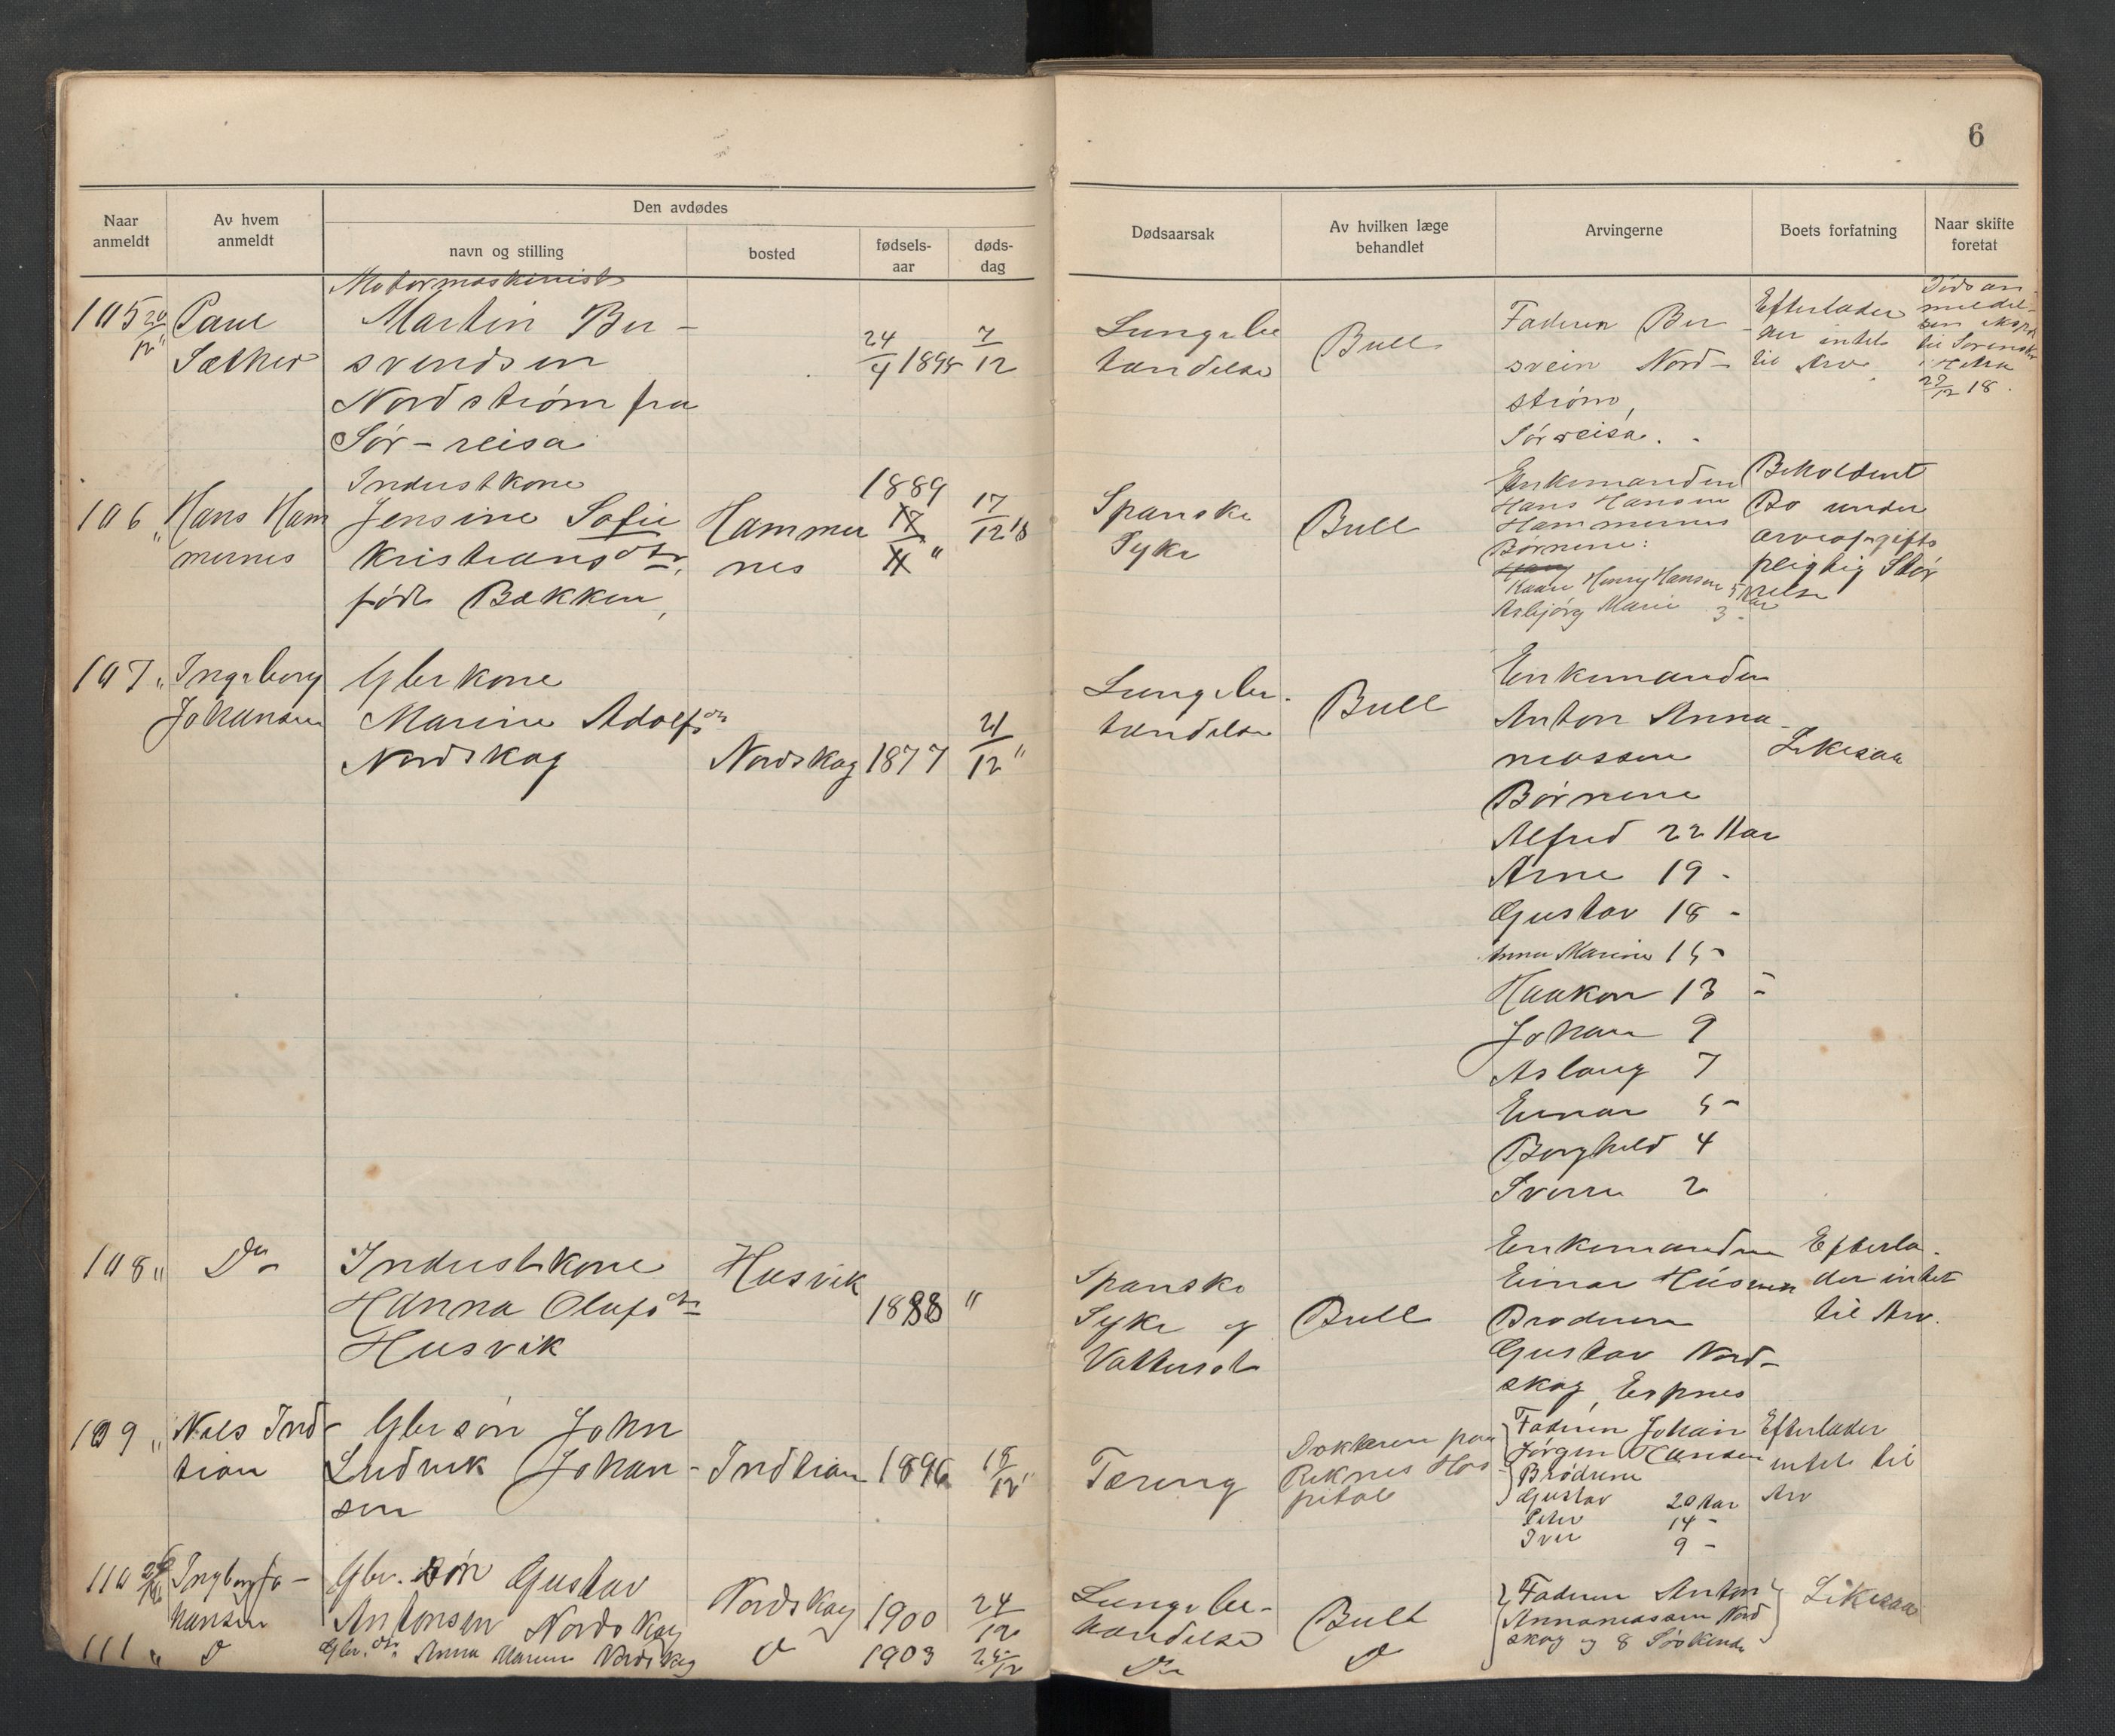 6
Naar anmeldt
Av hvem anmeldt
Den avdødes
navn og stilling
bosted
fødsels-aar
døds-dag
Dødsaarsak
Av hvilken læge behandlet
Arvingerne
Boets forfatning
Naar skifte foretat
105 20/12 "
Paul
Sæther
Motormaskinist
Martin Ber-
svendsen
Nordstrøm fra
Sør-reisa
24/4 1898
7/12
Lungebe
tændelse
Bull
Faderen Ber
svein Nord-
strøm,
Sørreisa.
Efterlader
der intet
til Arv
Dødsan-
meldel-
sen
til Sorenskr
29/12 18.
106 "
Hans Ham
mernes
Industkone
Jensine Sofie
Kristiansdtr.
født Bakken,
Hammer
nes
1889
17/4 "
17/12 18
Spanske
Syke
Bull
Enkemanden
Hans Hansen
Hammernes
Børnene:
Kaare Henry Hansen 5 Aar
Asbjørg Marie 3 -
Beholdent
Bo under
arveafgifts
pligtig Stør
relse
107 "
Ingeborg
Johansen
Gbrkone
Marine Adolfsdtr
Nordskag
Nordskag
1877
21/12 "
Lungebe-
tændelse
Bull
Enkemanden
Anton Anna-
niassen
Børnene
Alfred 22 Aar
Arne 19 -
Gustav 18 -
Anna Marine 15 -
Haakon 13 -
Johan 9
Aslaug 7
Einar 5 -
Borghild 4
Sverre 2
Likesaa
108 "
Do
Industkone
Hanna Olufsdtr
Husvik
Husvik
1888
"
Spanske
Syke og
Vattersot
Bull
Enkemanden
Einar Husvik
Broderen
Gustav Nord-
skag, Espnes
Efterla-
der intet
til Arv.
109 "
Nils Ind-
tian
Gbrsøn John
Ludvik Johan-
sen
Indtian
1896
18/12 "
Tæring
Doktoren paa
Reknes Hos-
pital
Faderen Johan
Jørgen Hansen
Brødrene
Gustav 20 Aar
Peter 14 -
Iver 9 -
Efterlader
intet til
Arv
110
Ingeborg Jo-
hansen
Gbr. søn Gustav
Antonsen Nordskag
Nordskag
1900
24/12
Lungebe-
tændelse
Bull
Faderen Anton
Annaniassen Nord
skag og 8 Søskende
Likesaa
111 "
Do
Gbr. dtr. Anna Marine Nordskag
Do
1903
Do
Do